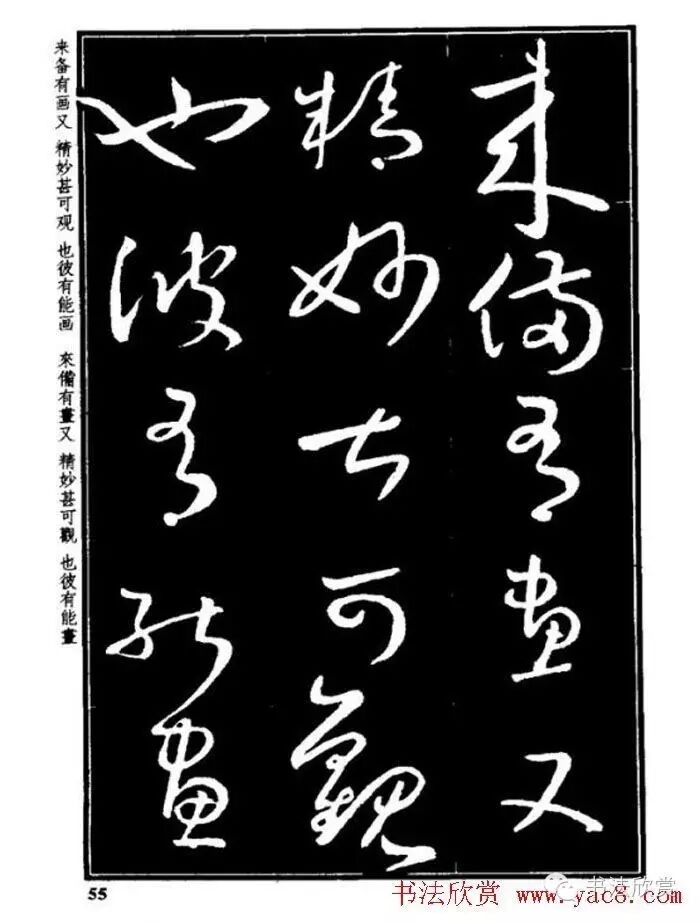 來備有畫又
精妙甚可觀
也彼有能畫
来备有画又 精妙甚可观 也彼有能画 來備有畫又 精妙甚可觀 也彼有能畫
55
书法欣赏 www.yac8.com
书法欣赏